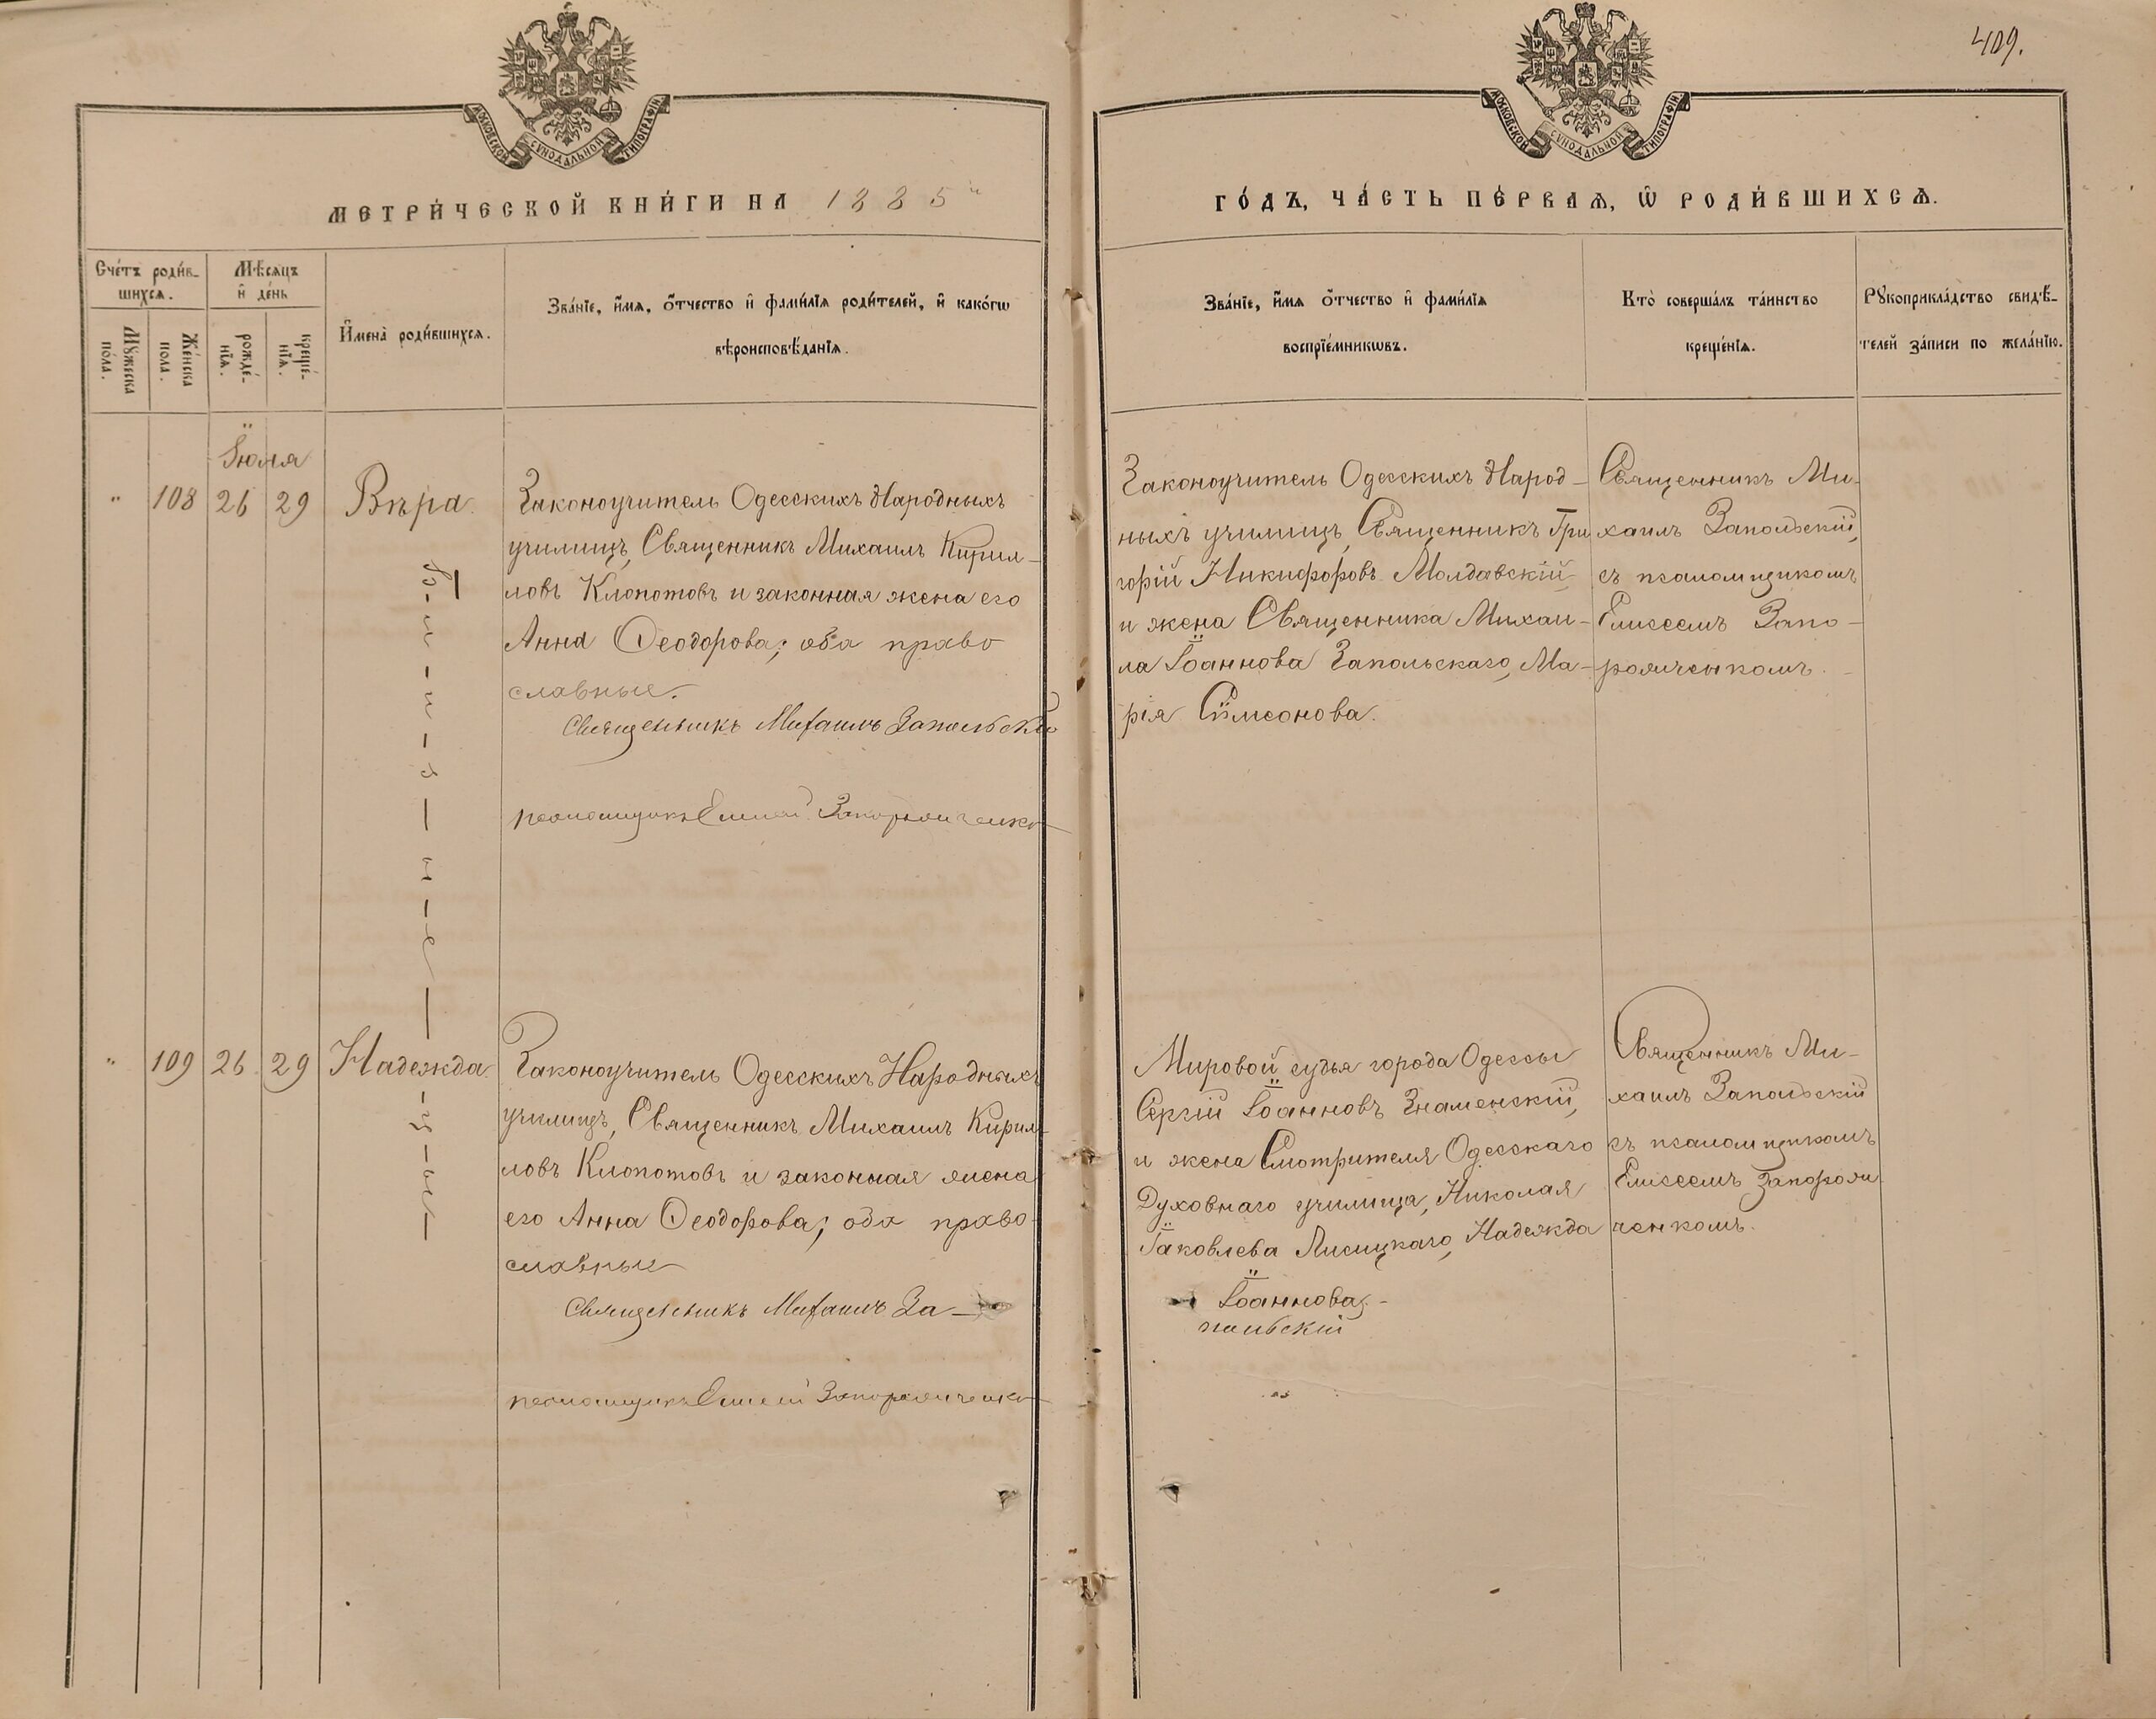 409.
МОСКОВСКОЙ СѴНОДАЛЬНОЙ ТИПОГРАФІИ
МОСКОВСКОЙ СѴНОДАЛЬНОЙ ТИПОГРАФІИ
МЕТРИ́ЧЕСКОЙ КНИ́ГИ НА 1885й
ГО́ДЪ, ЧА́СТЬ ПЕ́РВАѦ, Ѡ РОДИ́ВШИХСѦ.
Сче́тъ роди́в-
шихсѧ.
Мѣ́сѧцъ
и҆ де́нь
Мꙋ́жеска
по́ла.
Же́нска
пола.
рожде́-
нїѧ.
креще́-
нїѧ.
И҆мена̀ роди́вшихсѧ.
Зва́нїе, и҆́мѧ, о҆́тчество и҆ фами́лїѧ роди́телей, и҆ како́гѡ
вѣроисповѣ́данїѧ.
Зва́нїе, и҆́мѧ о҆́тчество и҆ фами́лїѧ
воспрїе́мникѡвъ.
Кто̀ соверша́лъ та́инство
креще́нїѧ.
Рꙋкоприкла́дство свидѣ́-
телей за́писи по жела́нїю.
Іюля
" 108 26 29 Вѣра.
Законоучитель Одесскихъ Народныхъ
училищъ, Священникъ Михаилъ Кирил-
ловъ Клопотовъ и законная жена его
Анна Ѳеодорова; оба право
славные.
Священникъ Михаилъ Запольскій
псаломщикъ Елисей Запорожченко
Законоучитель Одесскихъ Народ-
ныхъ училищъ, Священникъ Гри
горій Никифоровъ Молдавскій
и жена Священника Михаи-
ла Іоаннова Запольскаго, Ма-
рія Сѵмеонова.
Священникъ Ми-
хаилъ Запольскій,
съ псаломщикомъ
Елисеемъ Запо-
рожченкомъ.
Б-л-и-з-н-е-ц-ы-
" 109 26 29 Надежда.
Законоучитель Одесскихъ Народныхъ
училищъ, Священникъ Михаилъ Кирил-
ловъ Клопотовъ и законная жена
его Анна Ѳеодорова; оба право-
славные
Священникъ Михаилъ За-
псаломщикъ Елисей Запорожченко
Мировой судья города Одессы
Сергій Іоанновъ Знаменскій,
и жена Смотрителя Одесскаго
Духовнаго училища, Николая
Іаковлева Лисицкаго, Надежда
Іоаннова.-
польскій
Священникъ Ми-
хаилъ Запольскій
съ псаломщикомъ
Елисеемъ Запорож
ченкомъ.